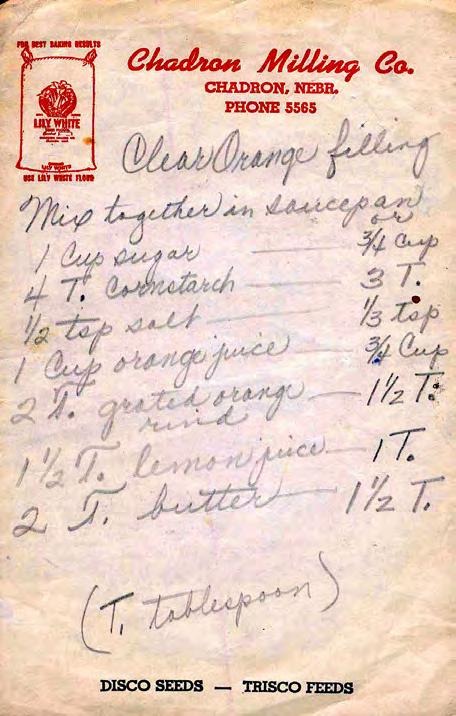 FOR BEST BAKING RESULTS
LILY WHITE
LILY WHITE
USE LILY WHITE FLOUR
Chadron Milling Co.
CHADRON, NEBR.
PHONE 5565
Clear Orange filling
Mix together in saucepan
or
1 Cup sugar — 3/4 Cup
4 T. Cornstarch — 3 T.
1/2 tsp salt — 1/3 tsp
1 Cup orange juice — 3/4 Cup
2 T. grated orange — 1 1/2 T.
rind
1 1/2 T. lemon juice — 1 T.
2 T. butter — 1 1/2 T.
(T. tablespoon)
DISCO SEEDS — TRISCO FEEDS